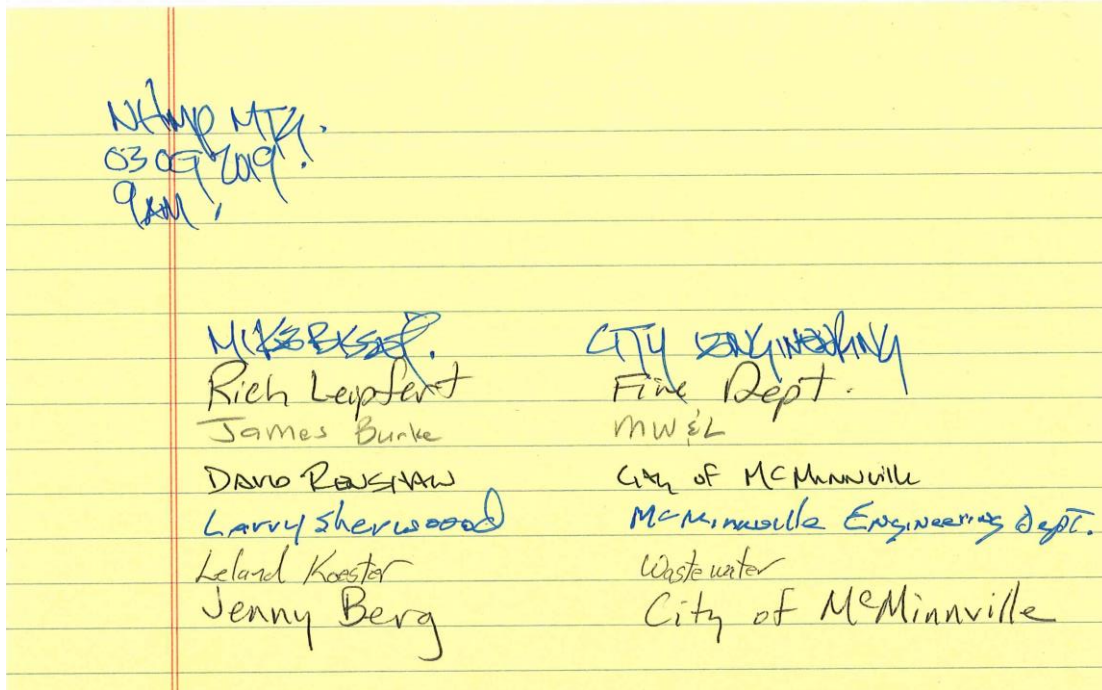 NHMP MTG.
03 09 2019
9AM
MIKE BISSET. CITY ENGINEERING
Rich Leipfert Fire Dept.
James Burke MW&L
DAVID RENSHAW City of McMinnville
Larry Sherwood McMinnville Engineering Dept.
Leland Koester Wastewater
Jenny Berg City of McMinnville